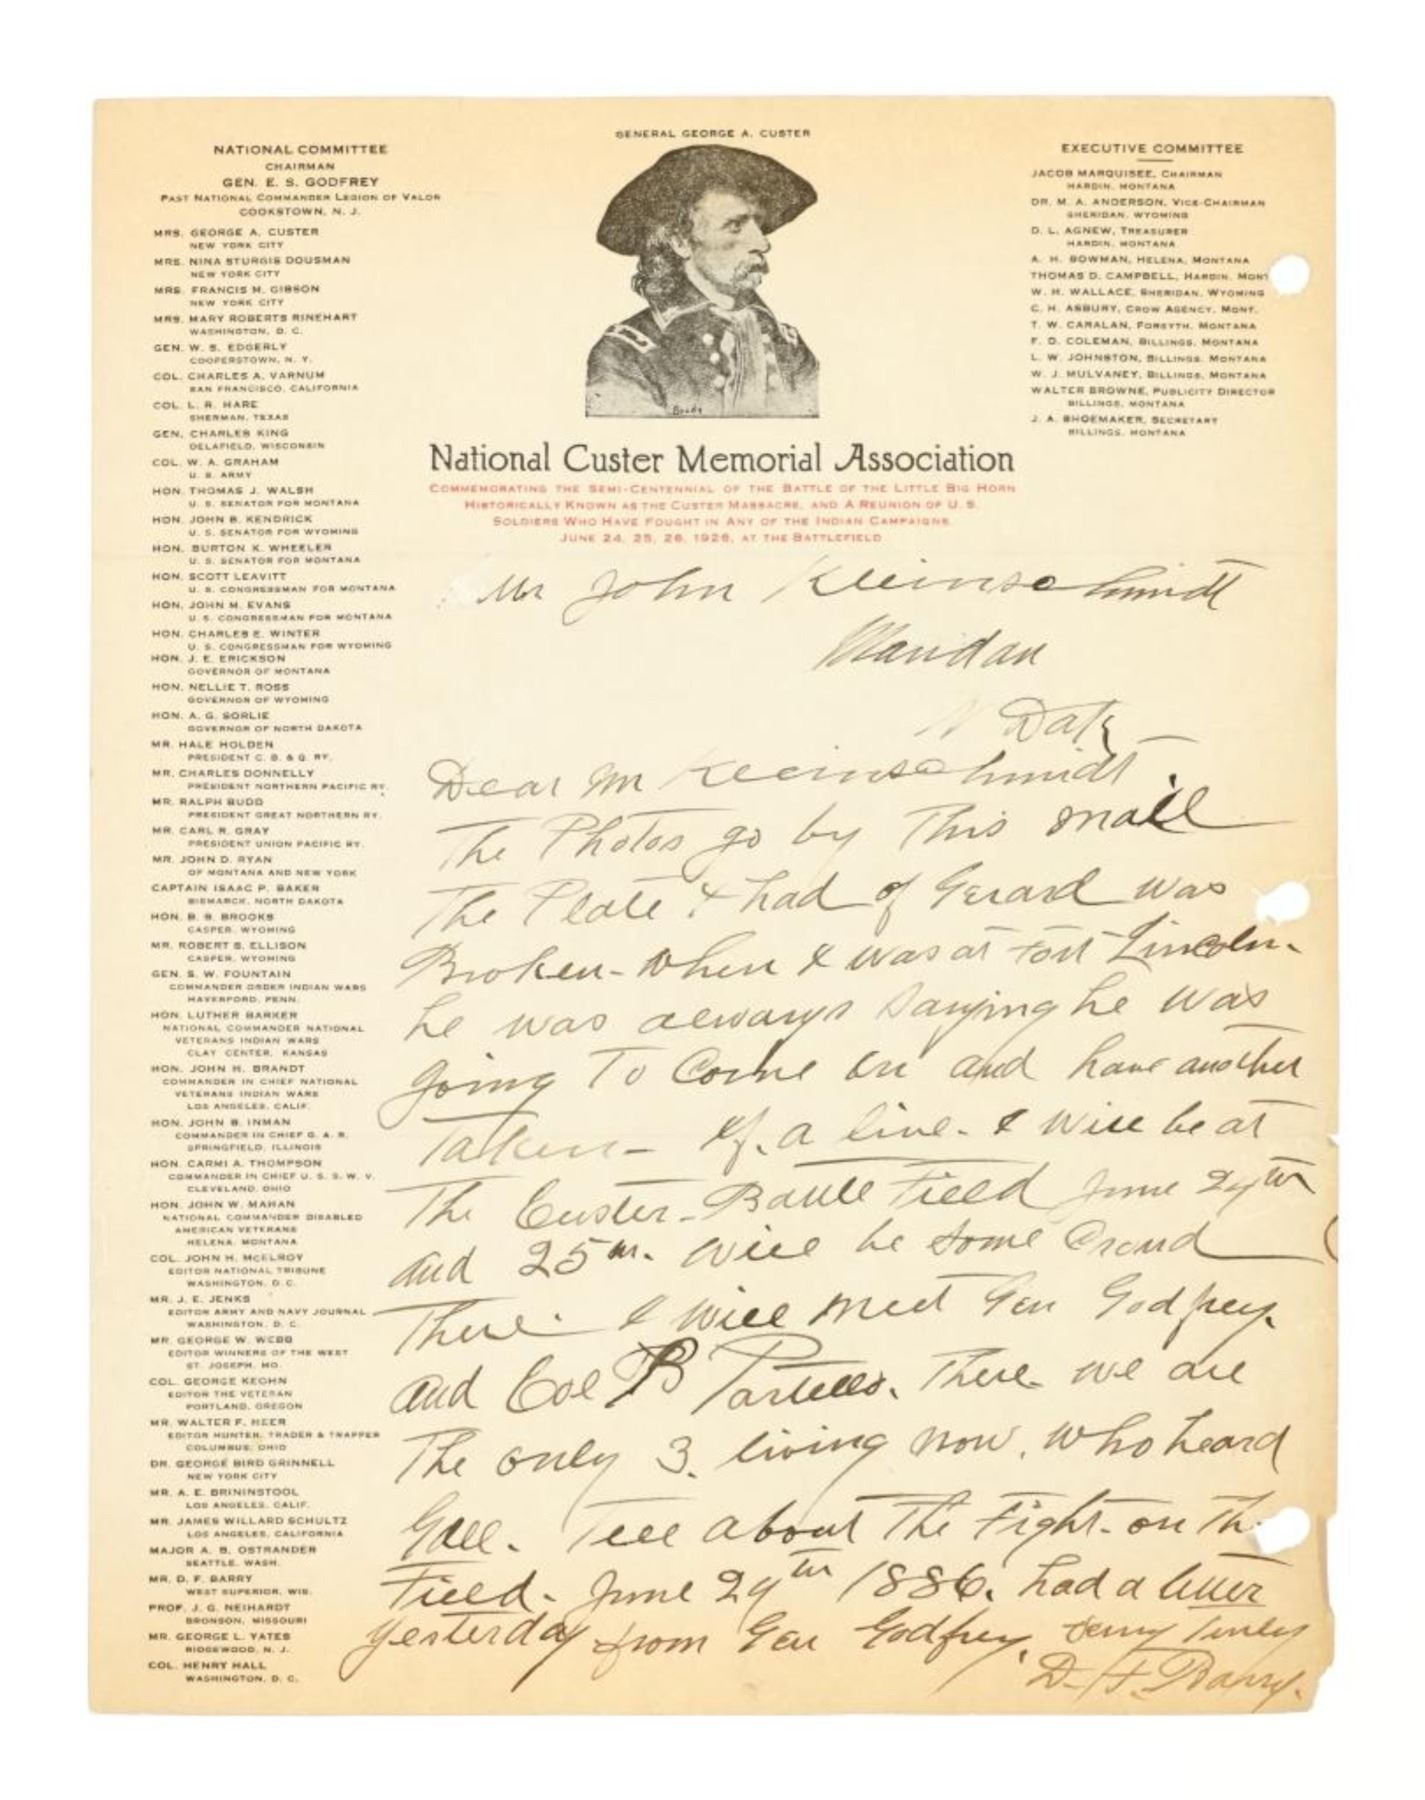 GENERAL GEORGE A. CUSTER
NATIONAL COMMITTEE
CHAIRMAN
GEN. E. S. GODFREY
PAST NATIONAL COMMANDER LEGION OF VALOR
COOKSTOWN, N. J.
MRS. GEORGE A. CUSTER
NEW YORK CITY
MRS. NINA STURGIS DOUSMAN
NEW YORK CITY
MRS. FRANCIS M. GIBSON
NEW YORK CITY
MRS. MARY ROBERTS RINEHART
WASHINGTON, D. C.
GEN. W. S. EDGERLY
COOPERSTOWN, N. Y.
COL. CHARLES A. VARNUM
SAN FRANCISCO, CALIFORNIA
COL. L. R. HARE
SHERMAN, TEXAS
GEN. CHARLES KING
DELAFIELD, WISCONSIN
COL. W. A. GRAHAM
U. S. ARMY
HON. THOMAS J. WALSH
U. S. SENATOR FOR MONTANA
HON. JOHN B. KENDRICK
U. S. SENATOR FOR WYOMING
HON. BURTON K. WHEELER
U. S. SENATOR FOR MONTANA
HON. SCOTT LEAVITT
U. S. CONGRESSMAN FOR MONTANA
HON. JOHN M. EVANS
U. S. CONGRESSMAN FOR MONTANA
HON. CHARLES E. WINTER
U. S. CONGRESSMAN FOR WYOMING
HON. J. E. ERICKSON
GOVERNOR OF MONTANA
HON. NELLIE T. ROSS
GOVERNOR OF WYOMING
HON. A. G. SORLIE
GOVERNOR OF NORTH DAKOTA
MR. HALE HOLDEN
PRESIDENT C. B. & Q. RY.
MR. CHARLES DONNELLY
PRESIDENT NORTHERN PACIFIC RY.
MR. RALPH BUDD
PRESIDENT GREAT NORTHERN RY.
MR. CARL R. GRAY
PRESIDENT UNION PACIFIC RY.
MR. JOHN D. RYAN
OF MONTANA AND NEW YORK
CAPTAIN ISAAC P. BAKER
BISMARCK, NORTH DAKOTA
HON. B. B. BROOKS
CASPER, WYOMING
MR. ROBERT S. ELLISON
CASPER, WYOMING
GEN. S. W. FOUNTAIN
COMMANDER ORDER INDIAN WARS
HAVERFORD, PENN.
HON. LUTHER BARKER
NATIONAL COMMANDER NATIONAL
VETERANS INDIAN WARS
CLAY CENTER, KANSAS
HON. JOHN H. BRANDT
COMMANDER IN CHIEF NATIONAL
VETERANS INDIAN WARS
LOS ANGELES, CALIF.
HON. JOHN B. INMAN
COMMANDER IN CHIEF G. A. R.
SPRINGFIELD, ILLINOIS
HON. CARMI A. THOMPSON
COMMANDER IN CHIEF U. S. S. W. V.
CLEVELAND, OHIO
HON. JOHN W. MAHAN
NATIONAL COMMANDER DISABLED
AMERICAN VETERANS
HELENA, MONTANA
COL. JOHN H. McELROY
EDITOR NATIONAL TRIBUNE
WASHINGTON, D. C.
MR. J. E. JENKS
EDITOR ARMY AND NAVY JOURNAL
WASHINGTON, D. C.
MR. GEORGE W. WEBB
EDITOR WINNERS OF THE WEST
ST. JOSEPH, MO.
COL. GEORGE KEOHN
EDITOR THE VETERAN
PORTLAND, OREGON
MR. WALTER F. HEER
EDITOR HUNTER, TRADER & TRAPPER
COLUMBUS, OHIO
DR. GEORGE BIRD GRINNELL
NEW YORK CITY
MR. A. E. BRININSTOOL
LOS ANGELES, CALIF.
MR. JAMES WILLARD SCHULTZ
LOS ANGELES, CALIFORNIA
MAJOR A. B. OSTRANDER
SEATTLE, WASH.
MR. D. F. BARRY
WEST SUPERIOR, WIS.
PROF. J. G. NEIHARDT
BRONSON, MISSOURI
MR. GEORGE L. YATES
RIDGEWOOD, N. J.
COL. HENRY HALL
WASHINGTON, D. C.
EXECUTIVE COMMITTEE
JACOB MARQUISEE, CHAIRMAN
HARDIN, MONTANA
DR. M. A. ANDERSON, VICE-CHAIRMAN
SHERIDAN, WYOMING
D. L. AGNEW, TREASURER
HARDIN, MONTANA
A. H. BOWMAN, HELENA, MONTANA
THOMAS D. CAMPBELL, HARDIN, MONT
W. H. WALLACE, SHERIDAN, WYOMING
C. H. ASBURY, CROW AGENCY, MONT.
T. W. CARALAN, FORSYTH, MONTANA
F. D. COLEMAN, BILLINGS, MONTANA
L. W. JOHNSTON, BILLINGS, MONTANA
W. J. MULVANEY, BILLINGS, MONTANA
WALTER BROWNE, PUBLICITY DIRECTOR
BILLINGS, MONTANA
J. A. SHOEMAKER, SECRETARY
BILLINGS, MONTANA
Brady
National Custer Memorial Association
COMMEMORATING THE SEMI-CENTENNIAL OF THE BATTLE OF THE LITTLE BIG HORN
HISTORICALLY KNOWN AS THE CUSTER MASSACRE, AND A REUNION OF U. S.
SOLDIERS WHO HAVE FOUGHT IN ANY OF THE INDIAN CAMPAIGNS
JUNE 24, 25, 26, 1926, AT THE BATTLEFIELD
Mr John Kleinschmidt
Mandan
N Dak
Dear Mr Kleinschmidt.
The Photos go by This mail
The Plate I had of Gerard was
Broken - When I was at Fort Lincoln -
he was always saying he was
going To Come in and have another
Taken - If. a live - I will be at
The Custer - Battle Field June 24th
and 25th. Will be some Crowd
There. I will meet Gen Godfrey.
and Col Partello. There we are
The only 3. living now. Who heard
Gall. Tell about The Fight - on Th
Field - June 29th 1886. had a letter
yesterday from Gen Godfrey. Very Truly
D. F. Barry.